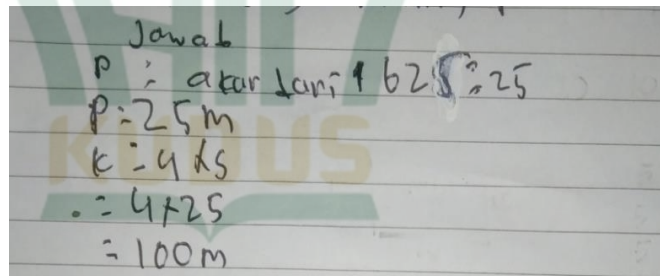 Jawab
P = akar dari 625 = 25
P = 25 m
K = 4 x s
= 4 x 25
= 100 m
KUDUS